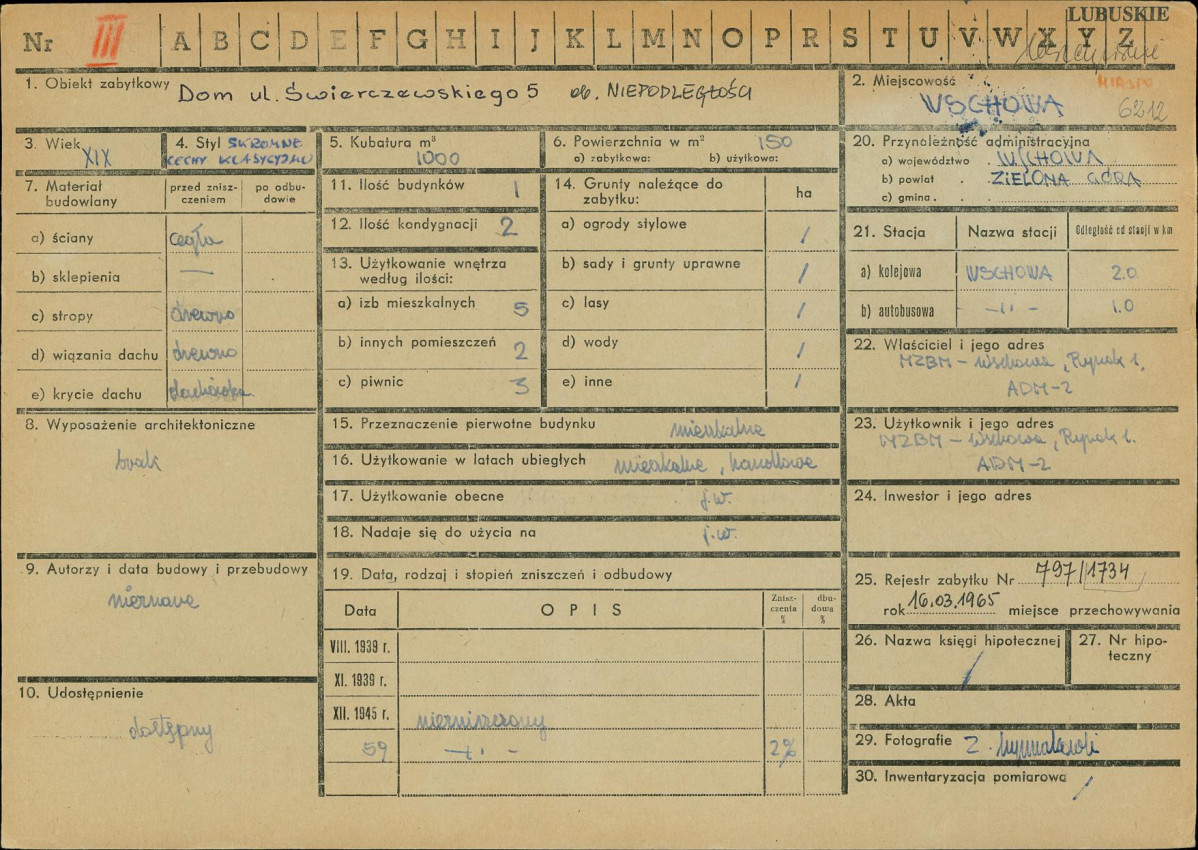 LUBUSKIE
Nr III A B C D E F G H I J K L M N O P R S T U V W X Y Z
1. Obiekt zabytkowy Dom ul. Świerczewskiego 5 ob. NIEPODLEGŁOŚCI
2. Miejscowość MIASTO
WSCHOWA 6212
3. Wiek XIX
4. Styl SKROMNE
CECHY KLASYCYZMU
5. Kubatura m³
1000
6. Powierzchnia w m² 150
a) zabytkowa: b) użytkowa:
7. Materiał budowlany
przed zniszczeniem
po odbudowie
a) ściany cegła
b) sklepienia —
c) stropy drewno
d) wiązania dachu drewno
e) krycie dachu dachówka
8. Wyposażenie architektoniczne
brak
9. Autorzy i data budowy i przebudowy
nieznane
10. Udostępnienie
dostępny
11. Ilość budynków 1
12. Ilość kondygnacji 2
13. Użytkowanie wnętrza
według ilości:
a) izb mieszkalnych 5
b) innych pomieszczeń 2
c) piwnic 3
14. Grunty należące do
zabytku: ha
a) ogrody stylowe /
b) sady i grunty uprawne /
c) lasy /
d) wody /
e) inne /
15. Przeznaczenie pierwotne budynku mieszkalne
16. Użytkowanie w latach ubiegłych mieszkalne, handlowe
17. Użytkowanie obecne j.w.
18. Nadaje się do użycia na j.w.
19. Data, rodzaj i stopień zniszczeń i odbudowy
Data OPIS Zniszczenia % dbudowa %
VIII. 1939 r.
XI. 1939 r.
XII. 1945 r. niezniszczony
59 —"— 2%
20. Przynależność administracyjna
a) województwo . WSCHOWA
b) powiat . ZIELONA GÓRA
c) gmina .
21. Stacja Nazwa stacji Odległość od stacji w km
a) kolejowa WSCHOWA 2.0
b) autobusowa —"— 1.0
22. Właściciel i jego adres
MZBM – Wschowa, Rynek 1.
ADM-2
23. Użytkownik i jego adres
MZBM – Wschowa, Rynek 1.
ADM-2
24. Inwestor i jego adres
25. Rejestr zabytku Nr 797/1734
rok 16.03.1965 miejsce przechowywania
26. Nazwa księgi hipotecznej /
27. Nr hipoteczny
28. Akta
29. Fotografie Z.
30. Inwentaryzacja pomiarowa /